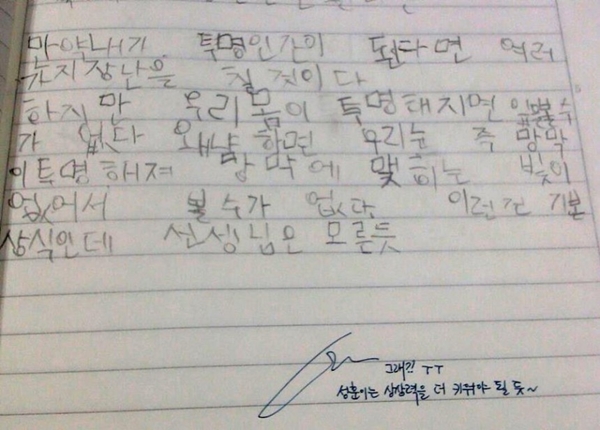 만약내가 투명인간이 된다면 여러
가지장난을 칠것이다
하지만 우리몸이 투명해지면 앞볼수
가 없다 왜냐하면 우리눈 즉 망막
이투명해져 망막에 맺히는 빛이
없어서 볼수가 없다 이런건 기본
상식인데 선생님은 모르듯
그래?! ㅜㅜ
성훈이는 상상력을 더 키워야 될 듯~